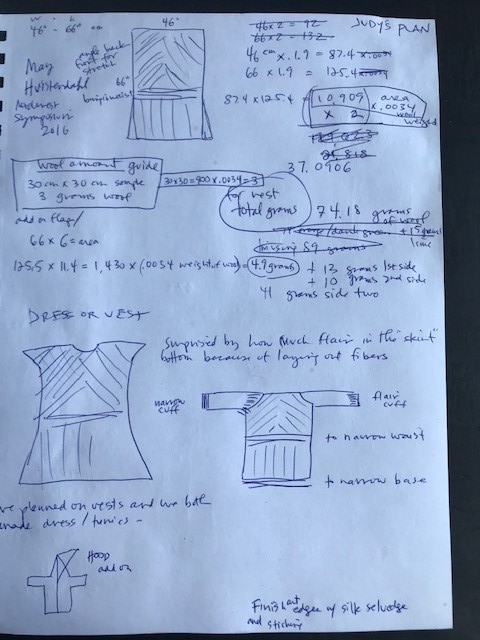 46" - 66"
46"
46 x 2 = 92
66 x 2 = 132
JUDY'S PLAN
46 cm x 1.9 = 87.4
66 x 1.9 = 125.4
87.4 x 125.4 = 10,909 area
x 2
x .0034
wool
weight
37.0906
angle back
front for
stretch
66"
May
Hvisterdahl
Symposium
2016
wool amount guide
30 cm x 30 cm sample
3 grams wool
30x30=900 x .0034=3
for vest
total grams
74.18 grams
of wool
+ 15 grams
89 grams
add on flap/
66 x 6 = area
125.5 x 11.4 = 1,430 x (.0034 weight of wool) = 4.9 grams
+ 13 grams 1st side
+ 10 grams 2nd side
41 grams side two
DRESS OR VEST
Surprised by how much flair in the "skirt"
bottom because of laying out fibers
narrow
cuff
flair
cuff
to narrow waist
to narrow base
we planned on vests and we both
made dress/tunics -
HOOD
add on
Finish out
edges w/ silk selvedge
and stitching